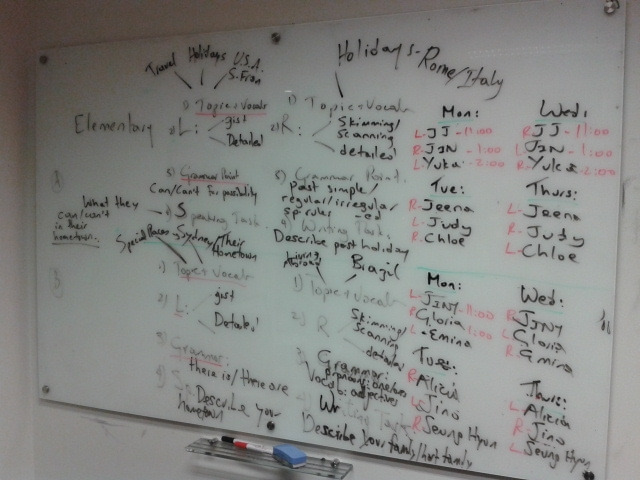 Travel Holidays U.S.A.
S.Fran
1) Topic + Vocab
Elementary 2) L: gist
Detailed
3) Grammar Point
Can/Can't for possibility
What they
can/can't
in their
hometown.
4) Speaking Task
Special Places Sydney/Their
Hometown
1) Topic + Vocab
2) L: gist
Detailed
3) Grammar:
there is/there are
Describe your
hometown
Holidays - Rome/Italy
1) Topic + Vocab
2) R: Skimming/
scanning
detailed
3) Grammar Point.
Past simple/
regular/irregular
sp rules -ed
4) Writing Task.
Describe past holiday
Living
Abroad Brazil
1) Topic + Vocab
2) R Skimming/
Scanning
detailed
3) Grammar:
Vocab: adjectives
Writing Task
Describe your family/host family
Mon:
L-JJ-11:00
R-JIN-1:00
L-Yuka-2:00
Tue:
R-Jeena
L-Judy
R-Chloe
Wed:
R-JJ-11:00
L-JIN-1:00
R-Yuka-2:00
Thurs:
L-Jeena
R-Judy
L-Chloe
Mon:
L-JINY-11:00
R-Gloria
L-Emina 1:00
Tues:
R-Alicia
L-Jino
R-Seung Hyun
Wed:
R-JINY
L-Gloria
R-Emina
Thurs:
L-Alicia
R-Jino
L-Seung Hyun